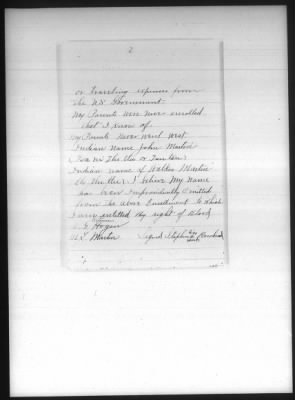 2
or traveling expenses from
the US Government.
My Parents were never enrolled
that I know of.
My Parents Never went west
Indian name John Martin
Indian name of Walker Martin
I believe My name
has been Improvidently omitted
from the above Enrollment to which
I am entitled by right of Blood
Hogan
Martin Signed Stephen
mark